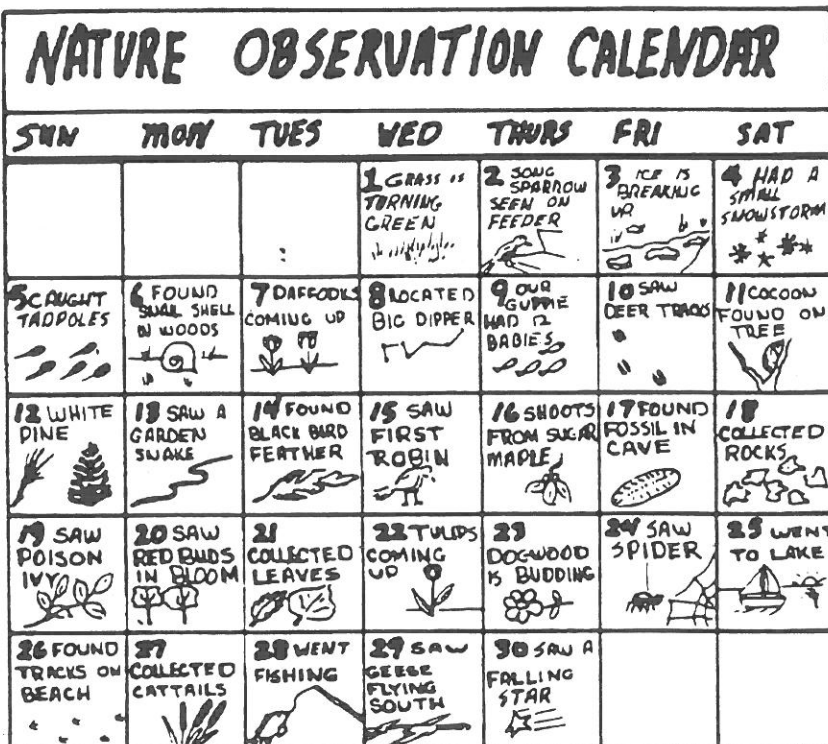 NATURE OBSERVATION CALENDAR
SUN MON TUES WED THURS FRI SAT
1 GRASS IS
TURNING
GREEN
2 SONG
SPARROW
SEEN ON
FEEDER
3 ICE IS
BREAKING
UP
4 HAD A
SMALL
SNOWSTORM
5 CAUGHT
TADPOLES
6 FOUND
SNAIL SHELL
IN WOODS
7 DAFFODILS
COMING UP
8 LOCATED
BIG DIPPER
9 OUR
GUPPIE
HAD 12
BABIES
10 SAW
DEER TRACKS
11 COCOON
FOUND ON
TREE
12 WHITE
PINE
13 SAW A
GARDEN
SNAKE
14 FOUND
BLACK BIRD
FEATHER
15 SAW
FIRST
ROBIN
16 SHOOTS
FROM SUGAR
MAPLE
17 FOUND
FOSSIL IN
CAVE
18
COLLECTED
ROCKS
19 SAW
POISON
IVY
20 SAW
RED BUDS
IN BLOOM
21
COLLECTED
LEAVES
22 TULIPS
COMING
UP
23
DOGWOOD
IS BUDDING
24 SAW
SPIDER
25 WENT
TO LAKE
26 FOUND
TRACKS ON
BEACH
27
COLLECTED
CATTAILS
28 WENT
FISHING
29 SAW
GEESE
FLYING
SOUTH
30 SAW A
FALLING
STAR